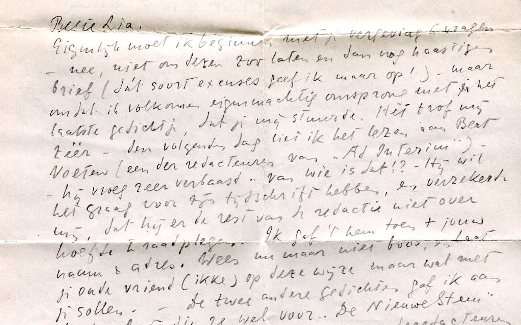 Beste Lia.
Eigenlijk moet ik beginnen met je vergeving te vragen
– nee, niet om dezen zoo laten en dan nog haastigen
brief (dát soort excuses geef ik maar op!) – maar
omdat ik volkomen eigenmachtig omsprong met je het
laatste gedichtje, dat je mij stuurde. Hét trof mij
zéér – den volgenden dag liet ik het lezen aan Bert
Voeten (een der redacteuren van "Ad Interim") –
– hij vroeg zeer verbaasd – van wie is dat!? – Hij wil
het graag voor zijn tijdschrift hebben, en verzekerde
mij, dat hij er de rest van de redactie niet over
hoefde te raadplegen. Ik gaf 't hem toen + jouw
naam & adres. Wees nu maar niet boos, & laat
je oude vriend (ikke) op deze wijze maar wat met
je sollen. – De twee andere gedichten gaf ik aan
die ze wel voor "De Nieuwe Stem"
redacteuren